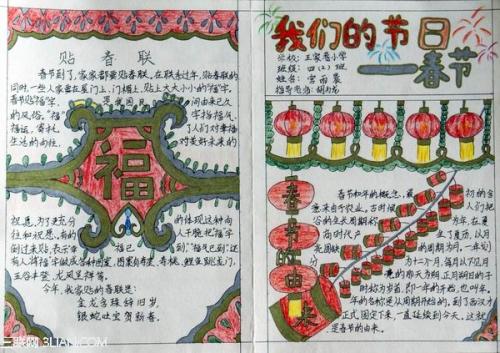 贴 春 联
春节到了,家家都要贴春联,在 过年,贴春联的
同时,一些人家要在屋门上、门楣上,贴上大大小小的"福"字。
春节贴"福"字, 是我国民 间由来已久
的风俗。"福" 字指福气、
福运,寄托 了人们对幸福
生活的向往, 对美好未来的
祝愿。为了更充分 的体现这种向
往和祝愿,有的 人干脆把"福"字
倒过来贴,表示"幸 福已 到","福气已到"还
有人将"福"字做成各种图案,图案有寿星、寿桃、鲤鱼跳龙门、
五谷丰登、龙凤呈祥等。
今年,我家贴的春联是:
金龙含珠辞旧岁,
银蛇吐宝贺新春。
福
我们的节日
——春节
学校:王家巷小学
班级:四(2)班
姓名:宫雨晨
指导老师:
春节的由来
春节和年的概念,最 初的含
意来自于农业,古时候 人们把谷
的生长周期称 为年,在夏
商时代产 生了夏历,以月
亮圆缺 的周期为月,一年划
为十二个月,每月以不见月
亮的那天为朔,正月朔日的子
时称为岁首,即一年的开始,也叫年,
年的名称是从周朝开始的,到了西汉才
正式固定下来,一直延续到今天,这就
是春节的由来。
三联网 3LIAN.COM